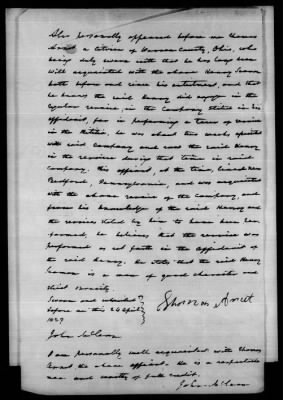 Also personally appeared before me Thomas
a citizen of Warren County, Ohio, who
being duly sworn saith that he has long been
well acquainted with the above Henry
both before and since his enlistment, and that
he knows the said Henry did engage in the
service in the Company stated in his
affidavit, for in performing a term of service
in the he was about two weeks
with said company and was the said Henry
in the service during that time in said
company. This affiant, at the time, lived near
Bedford, Pennsylvania, and was acquainted
with the above service of the Company, and
from his knowledge of the said Henry and
the service stated by him to have been per-
formed, he believes that the service was
performed as set forth in the affidavit of
the said Henry. He states that the said Henry
is a man of good character and
strict veracity.
Sworn and subscribed
before me this 26 April
1829
Thomas
John McLean
I am personally well acquainted with Thomas
the above affiant. He is a respectable
man and worthy of full credit.
John McLean